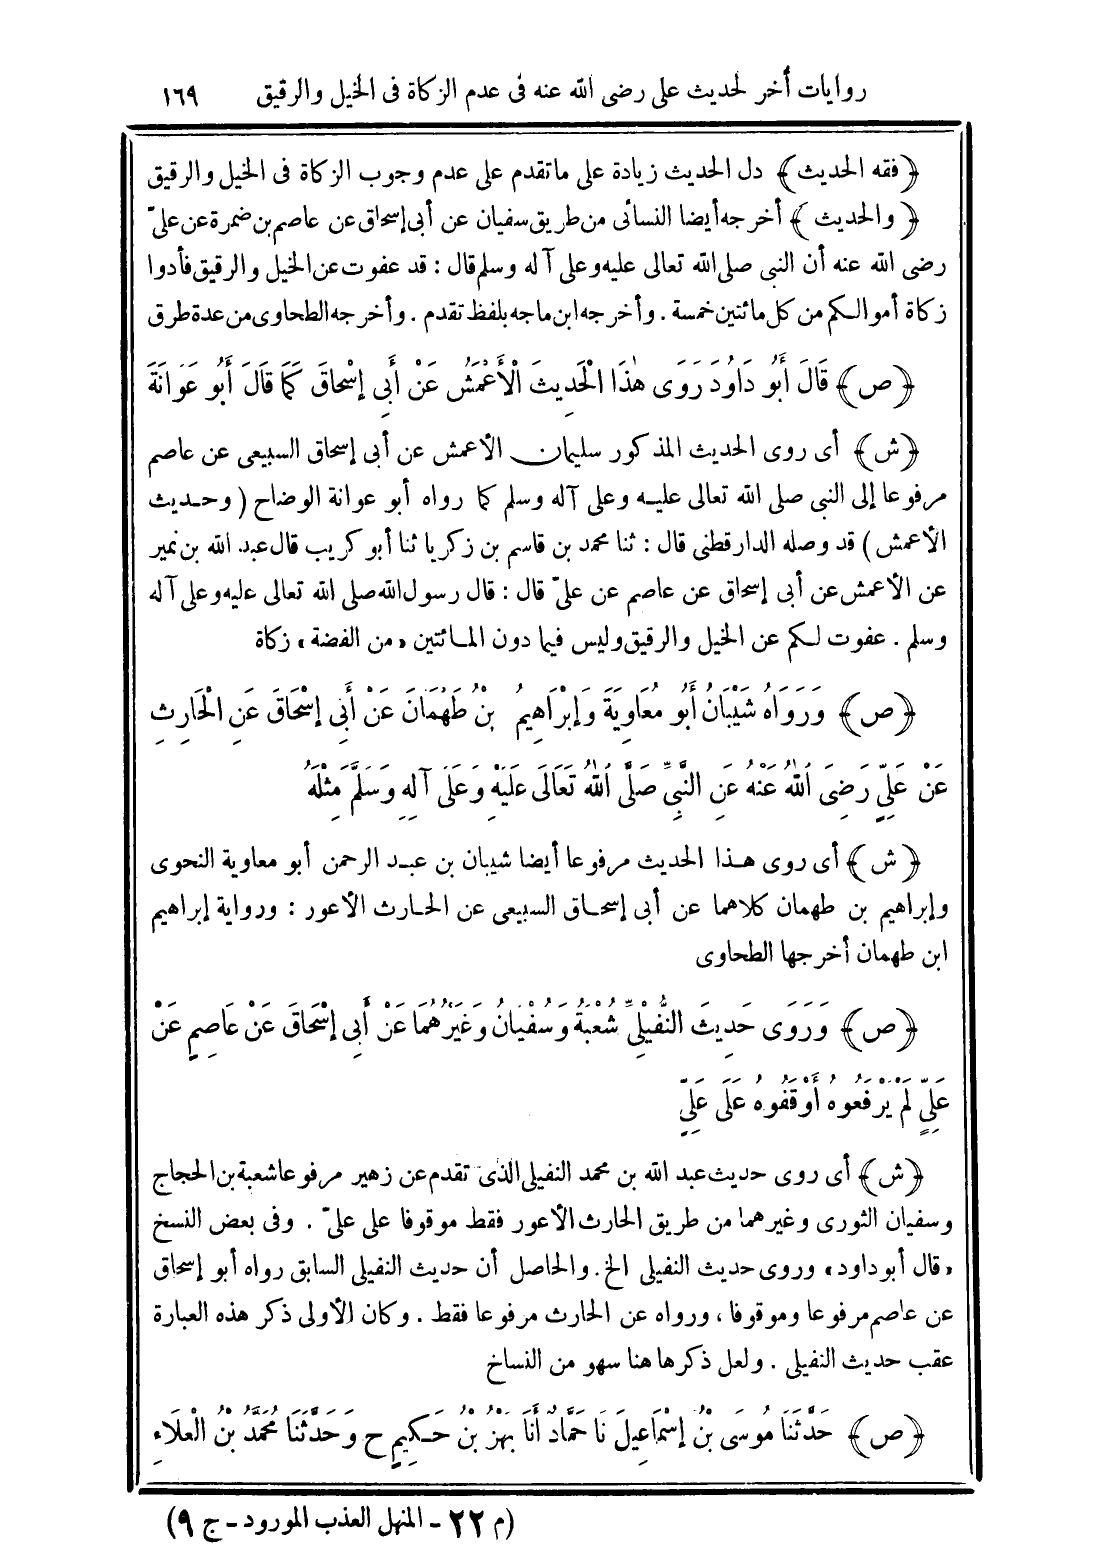 روايات أخر لحديث على رضى الله عنه فى عدم الزكاة فى الخيل والرقيق ١٦٩
﴿فقه الحديث﴾ دل الحديث زيادة على ماتقدم على عدم وجوب الزكاة فى الخيل والرقيق
﴿والحديث﴾ أخرجه أيضا النسائى من طريق سفيان عن أبى إسحاق عن عاصم بن ضمرة عن علىّ
رضى الله عنه أن النبى صلى الله تعالى عليه وعلى آله وسلم قال : قد عفوت عن الخيل والرقيق فأدوا
زكاة أموالكم من كل مائتين خمسة . وأخرجه ابن ماجه بلفظ تقدم . وأخرجه الطحاوى من عدة طرق
﴿ص﴾ قَالَ أَبُو دَاوُدَ رَوَى هٰذَا الْحَدِيثَ الْأَعْمَشُ عَنْ أَبِى إِسْحَاقَ كَمَا قَالَ أَبُو عَوَانَةَ
﴿ش﴾ أى روى الحديث المذكور سليمان الأعمش عن أبى إسحاق السبيعى عن عاصم
مرفوعا إلى النبى صلى الله تعالى عليه وعلى آله وسلم كما رواه أبو عوانة الوضاح (وحديث
الأعمش) قد وصله الدارقطنى قال : ثنا محمد بن قاسم بن زكريا ثنا أبو كريب قال عبد الله بن نمير
عن الأعمش عن أبى إسحاق عن عاصم عن علىّ قال : قال رسول الله صلى الله تعالى عليه وعلى آله
وسلم . عفوت لكم عن الخيل والرقيق وليس فيما دون المائتين «من الفضة» زكاة
﴿ص﴾ وَرَوَاهُ شَيْبَانُ أَبُو مُعَاوِيَةَ وَإِبْرَاهِيمُ بْنُ طَهْمَانَ عَنْ أَبِى إِسْحَاقَ عَنِ الْحَارِثِ
عَنْ عَلِيٍّ رَضِىَ اللهُ عَنْهُ عَنِ النَّبِيِّ صَلَّى اللهُ تَعَالَى عَلَيْهِ وَعَلَى آلِهِ وَسَلَّمَ مِثْلَهُ
﴿ش﴾ أى روى هذا الحديث مرفوعا أيضا شيبان بن عبد الرحمن أبو معاوية النحوى
وإبراهيم بن طهمان كلاهما عن أبى إسحاق السبيعى عن الحارث الأعور : ورواية إبراهيم
ابن طهمان أخرجها الطحاوى
﴿ص﴾ وَرَوَى حَدِيثَ النُّفَيْلِيِّ شُعْبَةُ وَسُفْيَانُ وَغَيْرُهُمَا عَنْ أَبِى إِسْحَاقَ عَنْ عَاصِمٍ عَنْ
عَلِيٍّ لَمْ يَرْفَعُوهُ أَوْقَفُوهُ عَلَى عَلِيٍّ
﴿ش﴾ أى روى حديث عبد الله بن محمد النفيلى الذى تقدم عن زهير مرفوعا شعبة بن الحجاج
وسفيان الثورى وغيرهما من طريق الحارث الأعور فقط موقوفا على علىّ . وفى بعض النسخ
«قال أبو داود» وروى حديث النفيلى الخ . والحاصل أن حديث النفيلى السابق رواه أبو إسحاق
عن عاصم مرفوعا وموقوفا ، ورواه عن الحارث مرفوعا فقط . وكان الأولى ذكر هذه العبارة
عقب حديث النفيلى . ولعل ذكرها هنا سهو من النساخ
﴿ص﴾ حَدَّثَنَا مُوسَى بْنُ إِسْمَاعِيلَ نَا حَمَّادٌ أَنَا بَهْزُ بْنُ حَكِيمٍ ح وَحَدَّثَنَا مُحَمَّدُ بْنُ الْعَلَاءِ
(م ٢٢ - المنهل العذب المورود - ج ٩)